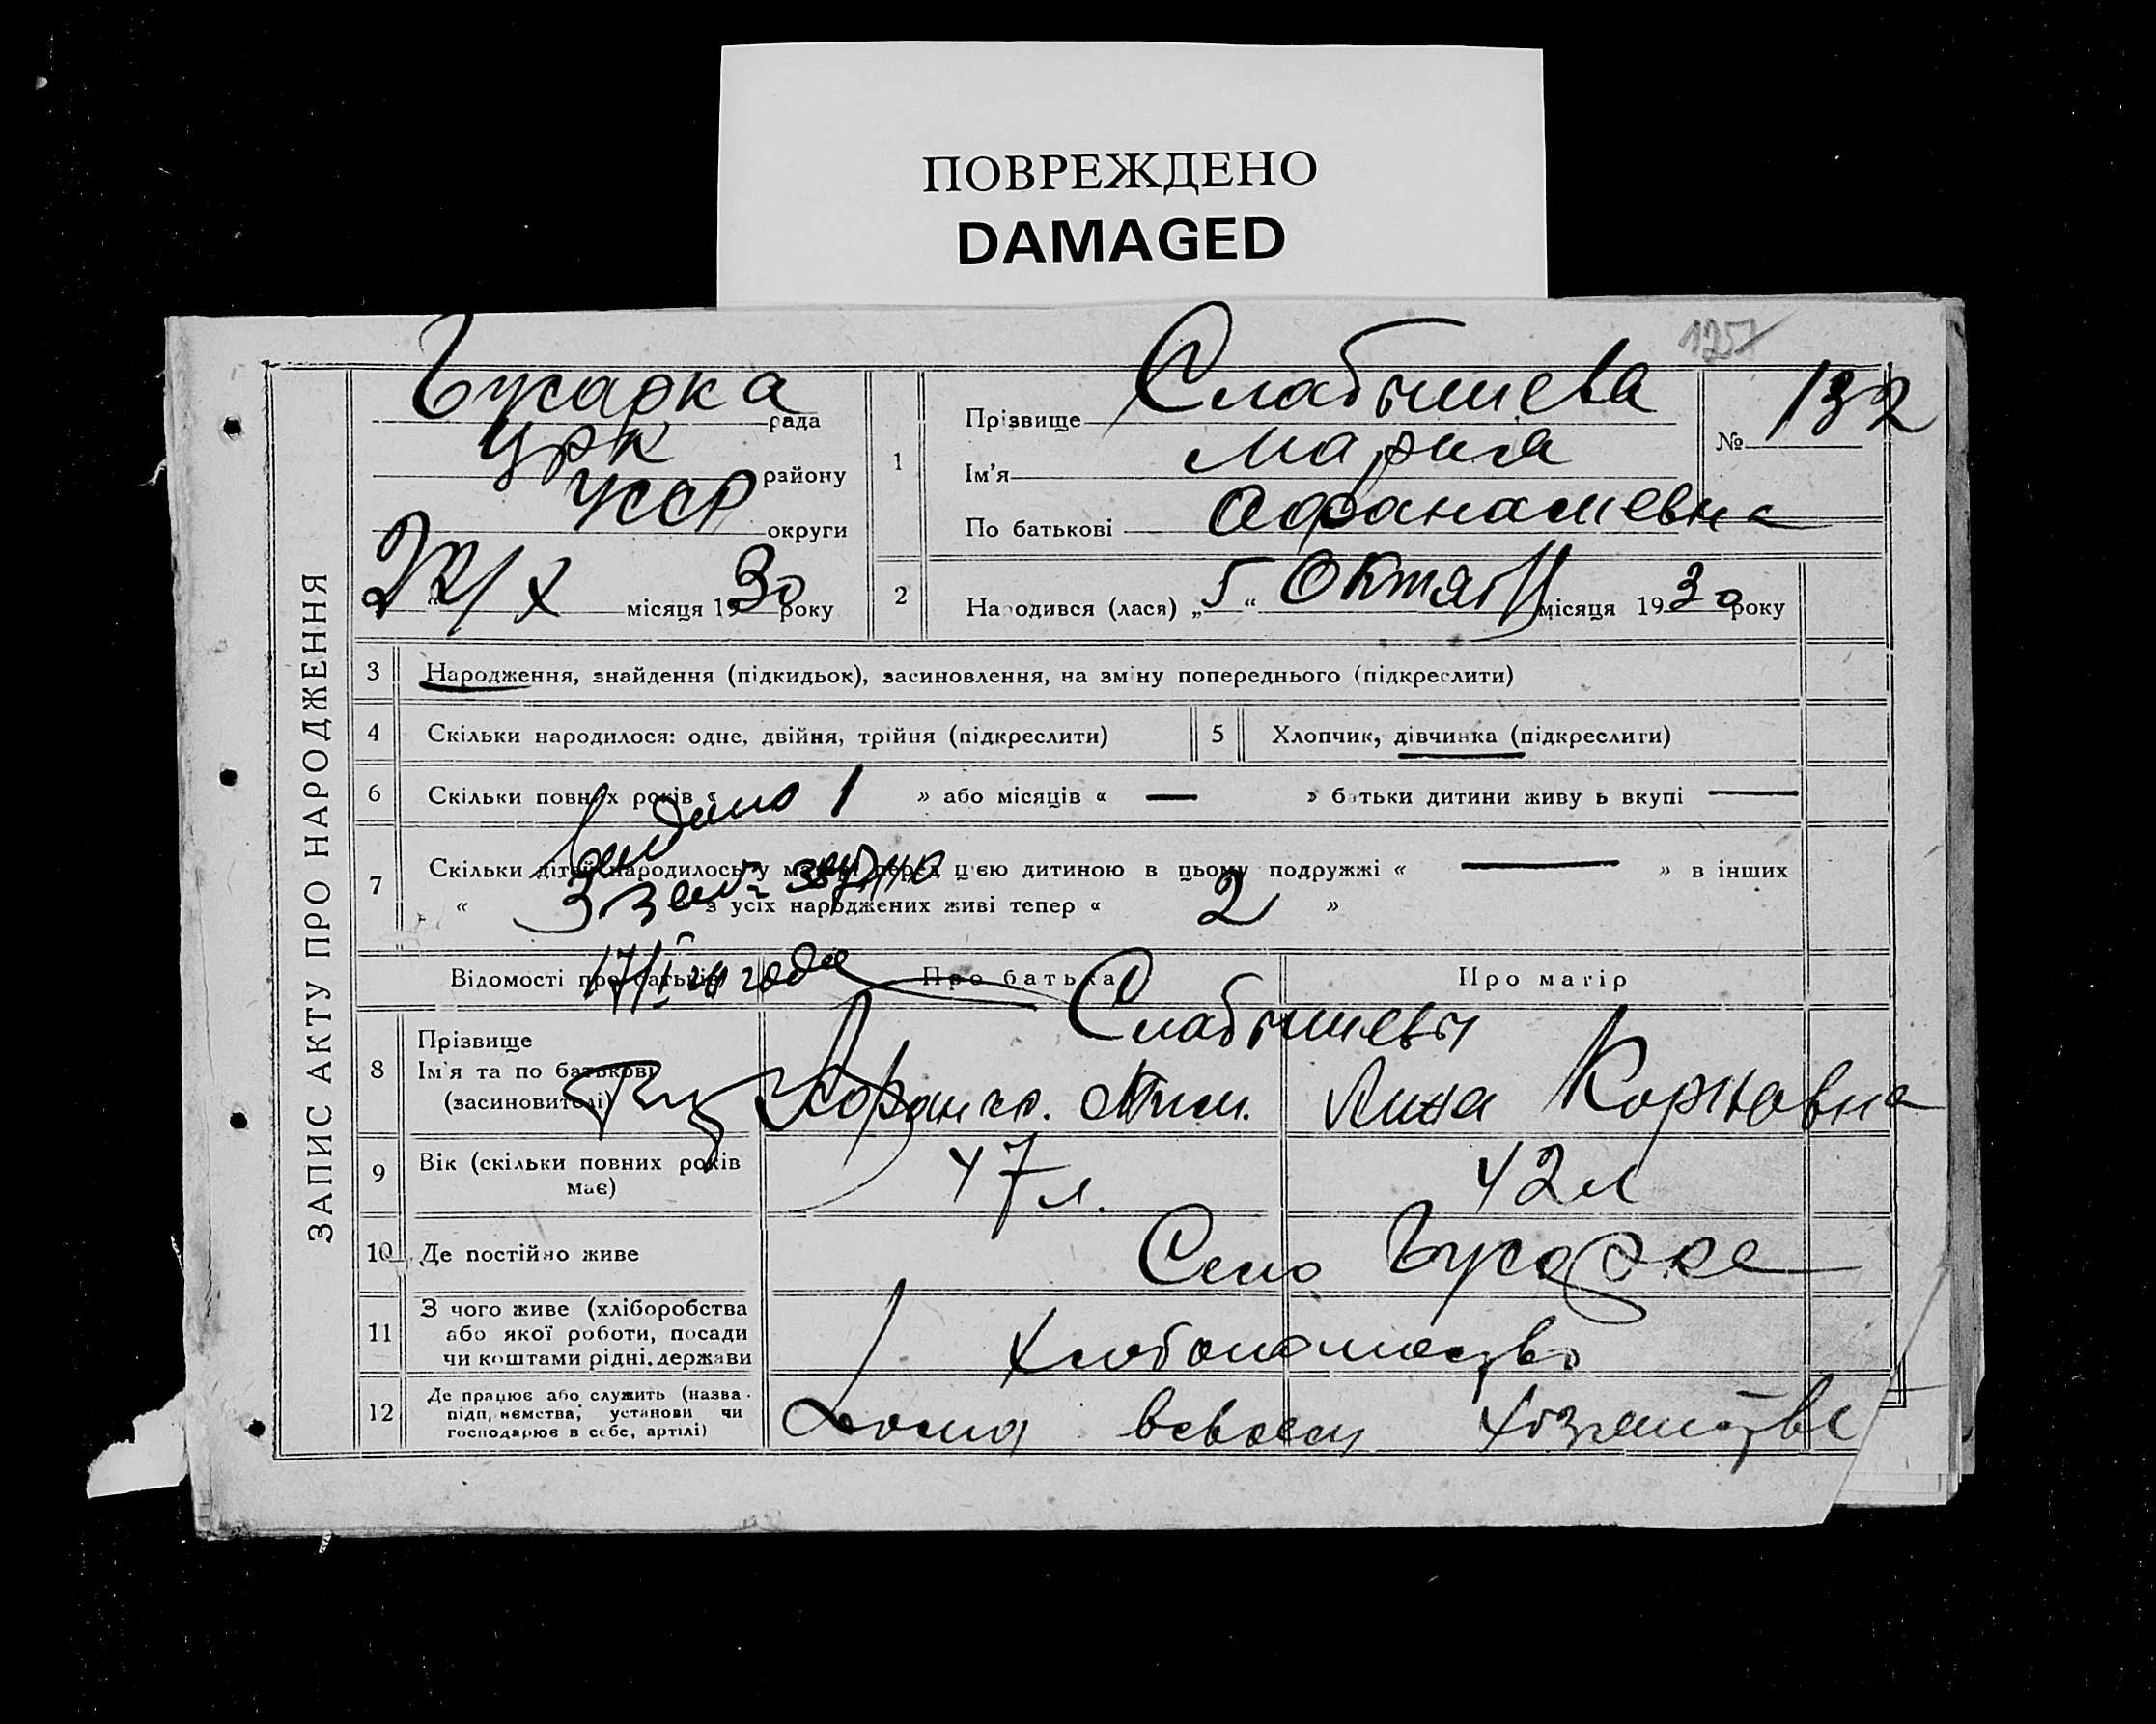 ПОВРЕЖДЕНО
DAMAGED
125
ЗАПИС АКТУ ПРО НАРОДЖЕННЯ
Гусарка рада
района
УССР округи
22/X місяця 1930 року
1
Прізвище Слабышева
№ 132
Ім'я Мария
По батькові Афанасиевна
2
Народився (лася) „5“ Октяб місяця 1930 року
3 Народження, знайдення (підкидьок), засиновлення, на зміну попереднього (підкреслити)
4 Скільки народилося: одне, двійня, трійня (підкреслити)
5 Хлопчик, дівчинка (підкреслити)
6 Скільки повних років « » або місяців « — » батьки дитини живуть вкупі —
7 Скільки дітей народилось у матері перед цією дитиною в цьому подружжі « — » в інших
« 3 з усіх народжених живі тепер « 2 »
17/I года
Відомості про батьків Про батька Про матір
8 Прізвище
Ім'я та по батькові
(засновителі)
Слабышевы
Афанас. Анна Корнавна
9 Вік (скільки повних років має) 47 л. 42 л
10 Де постійно живе Село Гусарке
11 З чого живе (хліборобства
або якої роботи, посади
чи коштами рідні, держави
Хлебопашество
12 Де працює або служить (назва
підприємства, установи чи
господарює в себе, артілі)
Дома всвоем хозяйстве